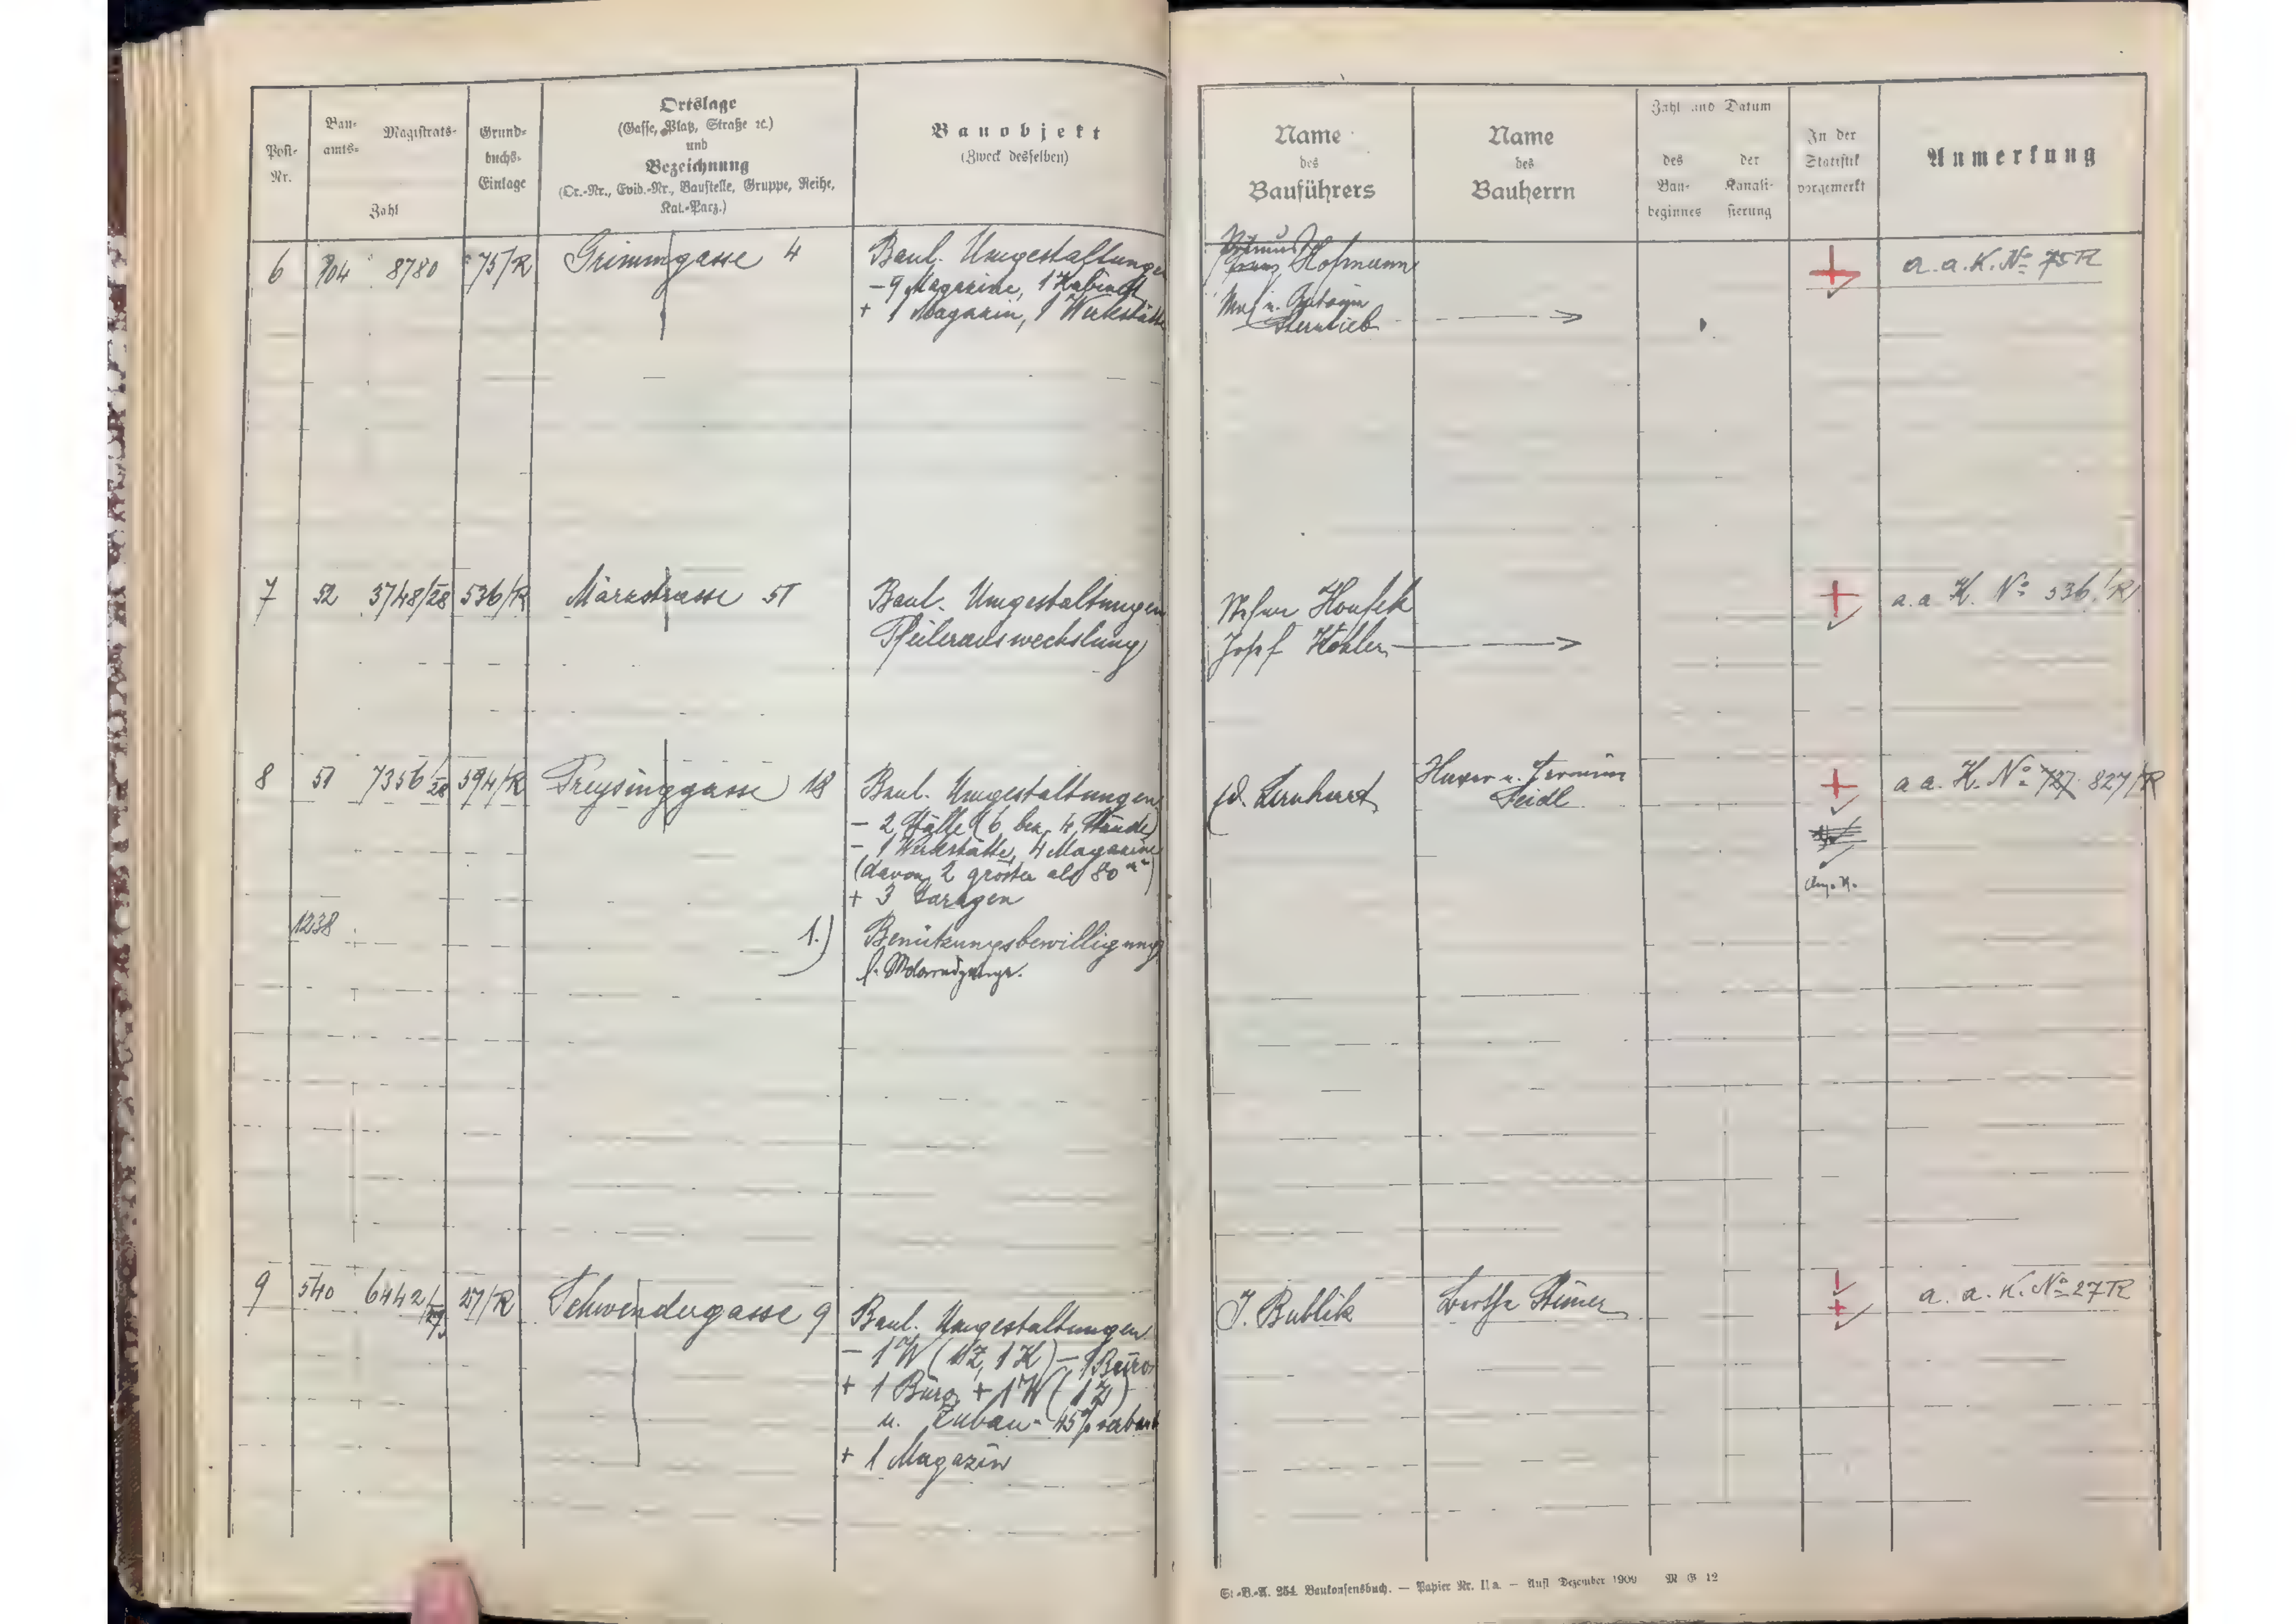 Post-
Nr.
Bau-
amts-
Magistrats-
Zahl
Grund-
buchs-
Einlage
Ortslage
(Gasse, Platz, Straße ꝛc.)
und
Bezeichnung
(Or.-Nr., Evid.-Nr., Baustelle, Gruppe, Reihe,
Kat.-Parz.)
Bauobjekt
(Zweck desselben)
Name
des
Bauführers
Name
des
Bauherrn
Zahl und Datum
des
Bau-
beginnes
der
Kanali-
sierung
In der
Statistik
vorgemerkt
Anmerkung
6 8780 75/R Grimmgasse 4 Baul. Umgestaltungen
Hofmann
a. a. K. No 75 R
- 9 Magazine, 1 Kabinett
+ 1 Magazin, 1 Werkstätte
7 52 3748/28 536/R Märzstrasse 51 Baul. Umgestaltungen
Pfeilerauswechslung
Josef Köhler
a. a. K. No 536/R
8 51 7356/28 594/R Freysinggasse 18 Baul. Umgestaltungen
- 2 Ställe (6 bez. 4 Stände)
- 1 Werkstätte, 4 Magazine
(davon 2 größer als 80 m²)
+ 3 Garagen
Seidl
a. a. K. No 727 827/R
1238 1.) Benützungsbewilligung
9 540 6442/29 27/R Schwendergasse 9 Baul. Umgestaltungen
- 1 W (1Z, 1K) - 1 Büro
+ 1 Büro + 1 W (1Z)
u. Zubau - 45% verbaut
+ 1 Magazin
J. Bublik
Bertha
a. a. K. No 27 R
St.-B.-A. 254. Baukonsensbuch. — Papier Nr. II a. — Aufl. Dezember 1909 M G 12